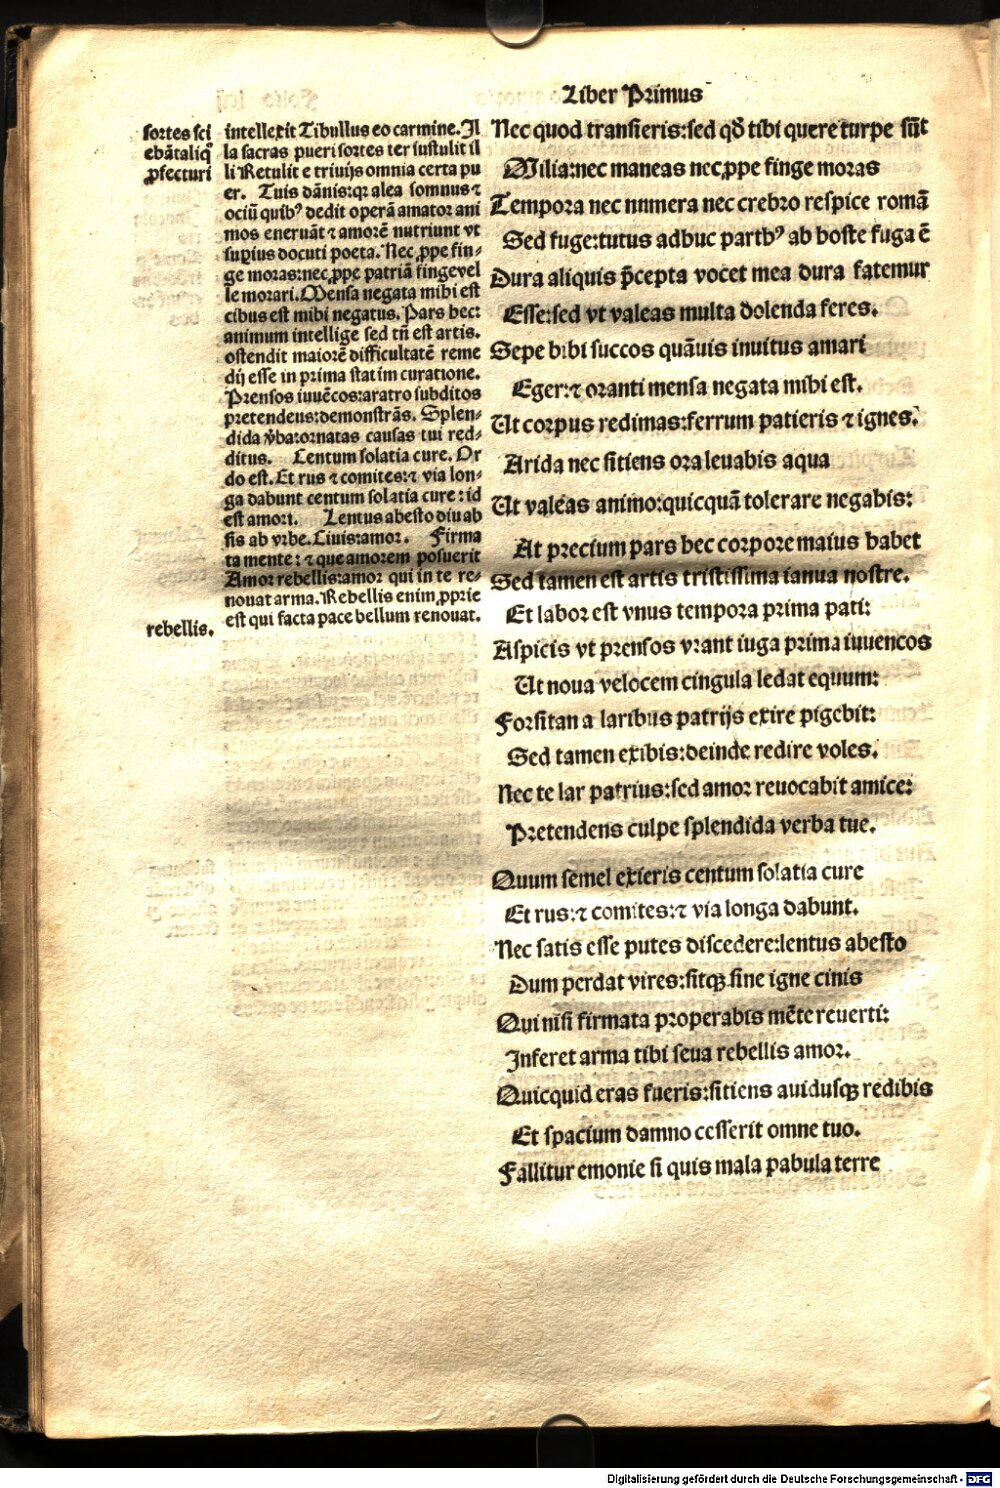 Liber Primus
sortes sci
ebāt aliqͥ
ꝓfecturi
intellexit Tibullus eo carmine. Il
la sacras pueri sortes ter sustulit il
li Retulit e triuijs omnia certa pu
er. Tuis dānis: qꝛ alea somnus ⁊
ociū quibꝰ dedit operā amator ani
mos eneruāt ⁊ amorē nutriunt vt
supius docuti poeta. Nec ꝓpe fin-
ge moras: nec ꝓpe patriā finge vel
le morari. Mensa negata mihi est
cibus est mihi negatus. Pars hec:
animum intellige sed tñ est artis.
ostendit maiorē difficultatē reme
dij esse in prima statim curatione.
Prensos iuuēcos: aratro subditos
pretendens: demonstrās. Splen-
dida v̄ba: ornatas causas tui red-
ditus. Centum solatia cure. Or
do est. Et rus ⁊ comites: ⁊ via lon-
ga dabunt centum solatia cure: id
est amori. Lentus abesto diu ab
sis ab vrbe. Ciuis: amor. Firma
ta mente: ⁊ que amorem posuerit
Amor rebellis: amor qui in te re-
nouat arma. Rebellis enim ꝓprie
est qui facta pace bellum renouat.
rebellis.
Nec quod transieris: sed qđ tibi quere turpe sūt
Milia: nec maneas nec ꝓpe finge moras
Tempora nec numera nec crebro respice romā
Sed fuge: tutus adhuc parthꝰ ab hoste fuga ē
Dura aliquis p̄cepta vocet mea dura fatemur
Esse: sed vt valeas multa dolenda feres.
Sepe bibi succos quāuis inuitus amari
Eger: ⁊ oranti mensa negata mihi est.
Ut corpus redimas: ferrum patieris ⁊ ignes.
Arida nec sitiens ora leuabis aqua
Ut valeas animo: quicquā tolerare negabis:
At precium pars hec corpore maius habet
Sed tamen est artis tristissima ianua nostre.
Et labor est vnus tempora prima pati:
Aspicis vt prensos vrant iuga prima iuuencos
Ut noua velocem cingula ledat equum:
Forsitan a laribus patrijs exire pigebit:
Sed tamen exibis: deinde redire voles.
Nec te lar patrius: sed amor reuocabit amice:
Pretendens culpe splendida verba tue.
Quum semel exieris centum solatia cure
Et rus: ⁊ comites: ⁊ via longa dabunt.
Nec satis esse putes discedere: lentus abesto
Dum perdat vires: sitqꝫ sine igne cinis
Qui nisi firmata properabis mēte reuerti:
Inferet arma tibi seua rebellis amor.
Quicquid eras fueris: sitiens auidusqꝫ redibis
Et spacium damno cesserit omne tuo.
Fallitur emonie si quis mala pabula terre
Digitalisierung gefördert durch die Deutsche Forschungsgemeinschaft - DFG